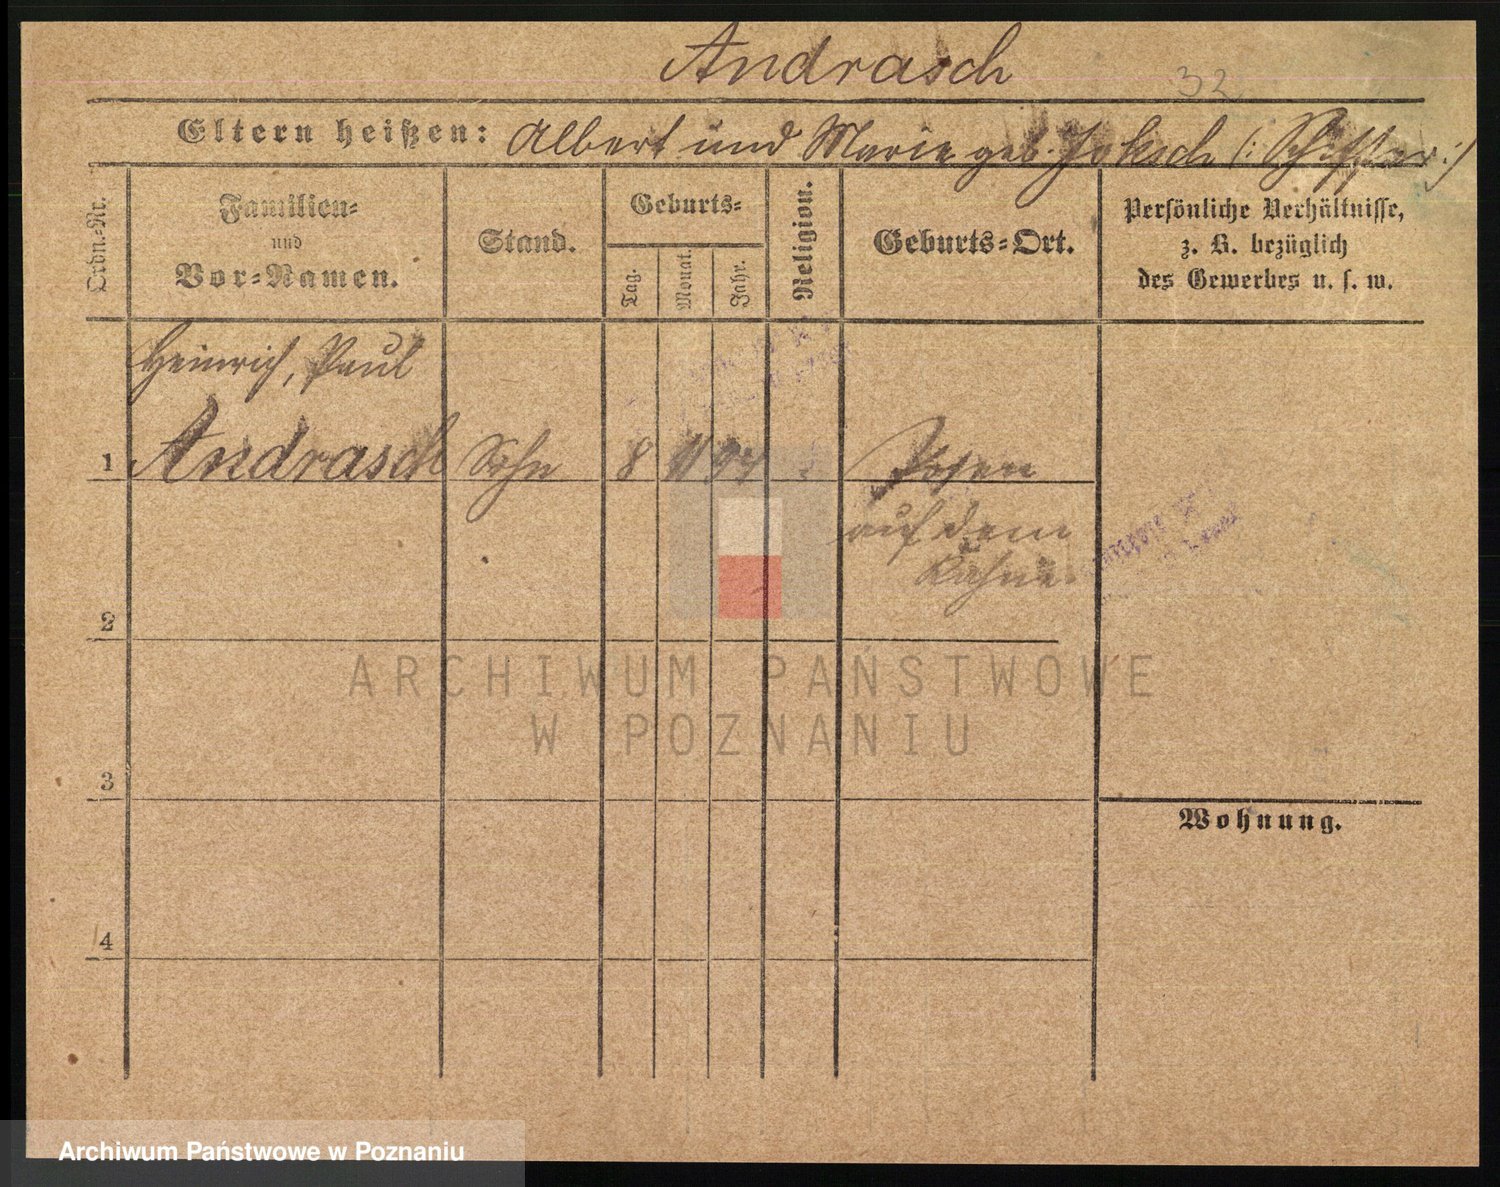 Andrasch
32
Eltern heißen: Albert und Marie geb. Joksch (: Schiffer :)
Ordn.-Nr.
Familien-
und
Vor-Namen.
Stand.
Geburts-
Tag.
Monat.
Jahr.
Religion.
Geburts-Ort.
Persönliche Verhältnisse,
z. B. bezüglich
des Gewerbes u. s. w.
Heinrich, Paul
1 Andrasch Sohn 8 11 Posen
auf dem
Kahne
2
ARCHIWUM PAŃSTWOWE
W POZNANIU
3
Wohnung.
4
Archiwum Państwowe w Poznaniu